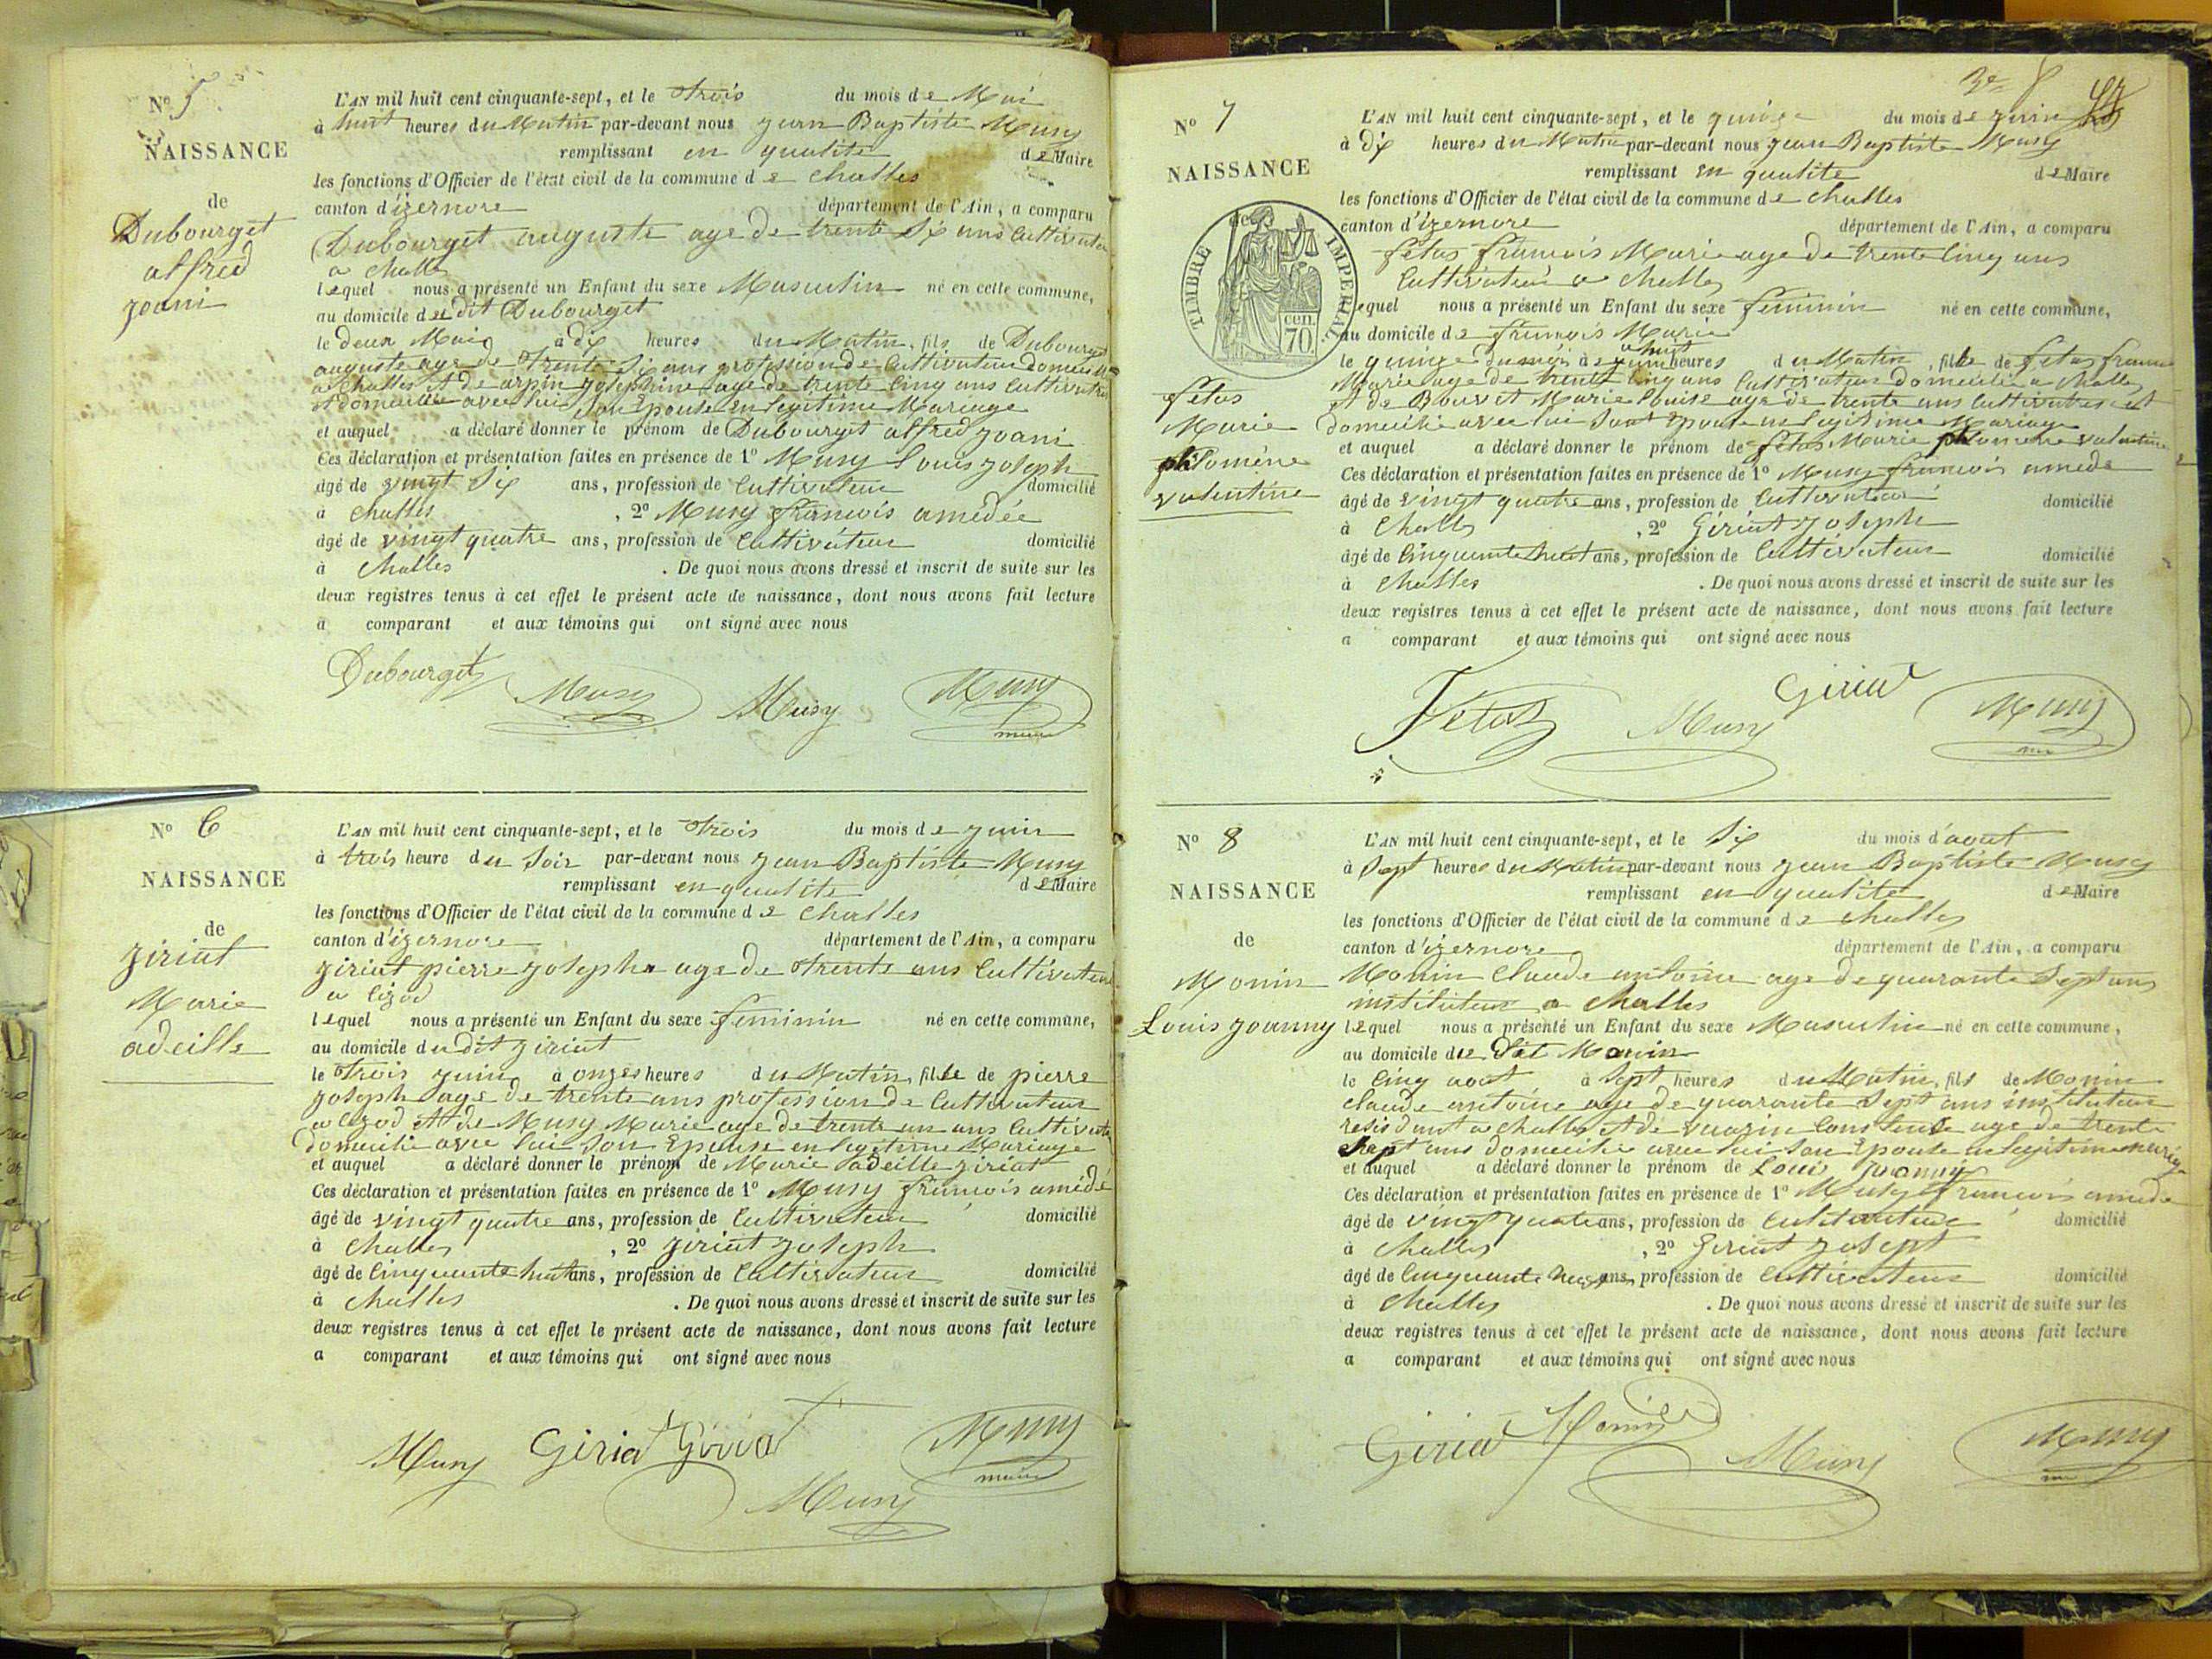 N° 5
NAISSANCE
de
Dubourget
alfred
joani
L'AN mil huit cent cinquante-sept, et le trois du mois de Mai
à huit heures du Matin par-devant nous jean Baptiste Musy
remplissant en qualité de Maire
les fonctions d'Officier de l'état civil de la commune de Challes
canton d'izernore département de l'Ain, a comparu
Dubourget auguste age de trente Six ans Cultivateur
a Challes
lequel nous a présenté un Enfant du sexe Masculin né en cette commune,
au domicile du dit Dubourget
le deux Mai à dix heures du Matin, fils de Dubourget
auguste age de trente Six ans profession de Cultivateur domicilié
a Challes et de arpin josephine age de trente Cinq ans Cultivatrice
et domiciliée avec lui Son Epouse en legitime Mariage
et auquel a déclaré donner le prénom de Dubourget alfred joani
Ces déclaration et présentation faites en présence de 1° Musy Louis joseph
âgé de vingt Six ans, profession de Cultivateur domicilié
à Challes, 2° Musy francois amédée
âgé de vingt quatre ans, profession de Cultivateur domicilié
à Challes. De quoi nous avons dressé et inscrit de suite sur les
deux registres tenus à cet effet le présent acte de naissance, dont nous avons fait lecture
a comparant et aux témoins qui ont signé avec nous
Dubourget Musy Musy Musy
maire
N° 6
NAISSANCE
de
giriat
Marie
adeille
L'AN mil huit cent cinquante-sept, et le trois du mois de juin
à trois heure du Soir par-devant nous jean Baptiste Musy
remplissant en qualité de Maire
les fonctions d'Officier de l'état civil de la commune de Challes
canton d'izernore département de l'Ain, a comparu
giriat pierre joseph age de trente ans Cultivateur
a lizod
lequel nous a présenté un Enfant du sexe feminin né en cette commune,
au domicile du dit giriat
le trois juin à onzes heures du Matin, fille de pierre
joseph age de trente ans profession de Cultivateur
a lizod et de Musy Marie age de trente un ans Cultivatrice
domicilié avec lui Son Epouse en legitime Mariage
et auquel a déclaré donner le prénom de Marie adeille giriat
Ces déclaration et présentation faites en présence de 1° Musy francois amédé
âgé de vingt quatre ans, profession de Cultivateur domicilié
à Challes, 2° giriat joseph
âgé de Cinquante huit ans, profession de Cultivateur domicilié
à Challes. De quoi nous avons dressé et inscrit de suite sur les
deux registres tenus à cet effet le présent acte de naissance, dont nous avons fait lecture
a comparant et aux témoins qui ont signé avec nous
Musy Giriat Giriat Musy
maire
Musy
N° 7
NAISSANCE
de
TIMBRE IMPERIAL
70 cen.
fetas
Marie
philoméne
valentine
L'AN mil huit cent cinquante-sept, et le quinze du mois de juin
à dix heures du Matin par-devant nous jean Baptiste Musy
remplissant en qualite de Maire
les fonctions d'Officier de l'état civil de la commune de Challes
canton d'izernore département de l'Ain, a comparu
fetas francois Marie age de trente Cinq ans
Cultivateur a Challes
lequel nous a présenté un Enfant du sexe feminin né en cette commune,
au domicile de francois Marie
le quinze du mois à huit heures du Matin, fille de fetas francois
Marie age de trente Cinq ans Cultivateur domicilié a Challes
et de Bouvet Marie Louise age de trente ans Cultivatrice et
domicilié avec lui Son Epouse en legitime Mariage
et auquel a déclaré donner le prénom de fetas Marie philomene valentine
Ces déclaration et présentation faites en présence de 1° Musy francois amede
âgé de vingt quatre ans, profession de Cultivateur domicilié
à Challes, 2° Giriat joseph
âgé de Cinquante huit ans, profession de Cultivateur domicilié
à Challes. De quoi nous avons dressé et inscrit de suite sur les
deux registres tenus à cet effet le présent acte de naissance, dont nous avons fait lecture
a comparant et aux témoins qui ont signé avec nous
Fetas Musy Giriat Musy
N° 8
NAISSANCE
de
Monin
Louis joanny
L'AN mil huit cent cinquante-sept, et le Six du mois d'aout
à Sept heures du Matin par-devant nous jean Baptiste Musy
remplissant en qualite de Maire
les fonctions d'Officier de l'état civil de la commune de Challes
canton d'izernore département de l'Ain, a comparu
Monin Claude antoine age de quarante Sept ans
instituteur a Challes
lequel nous a présenté un Enfant du sexe Masculin né en cette commune,
au domicile du dit Monin
le Cinq aout à Sept heures du Matin, fils de Monin
Claude antoine age de quarante Sept ans instituteur
residant a Challes et de age de trente
Sept ans domicilie avec lui Son Epouse en legitime mariage
et auquel a déclaré donner le prénom de Louis joanny
Ces déclaration et présentation faites en présence de 1° Musy francois amede
âgé de vingt quatre ans, profession de Cultivateur domicilié
à Challes, 2° Giriat josept
âgé de Cinquante huit ans, profession de Cultivateur domicilié
à Challes. De quoi nous avons dressé et inscrit de suite sur les
deux registres tenus à cet effet le présent acte de naissance, dont nous avons fait lecture
a comparant et aux témoins qui ont signé avec nous
Giriat Monin Musy Musy